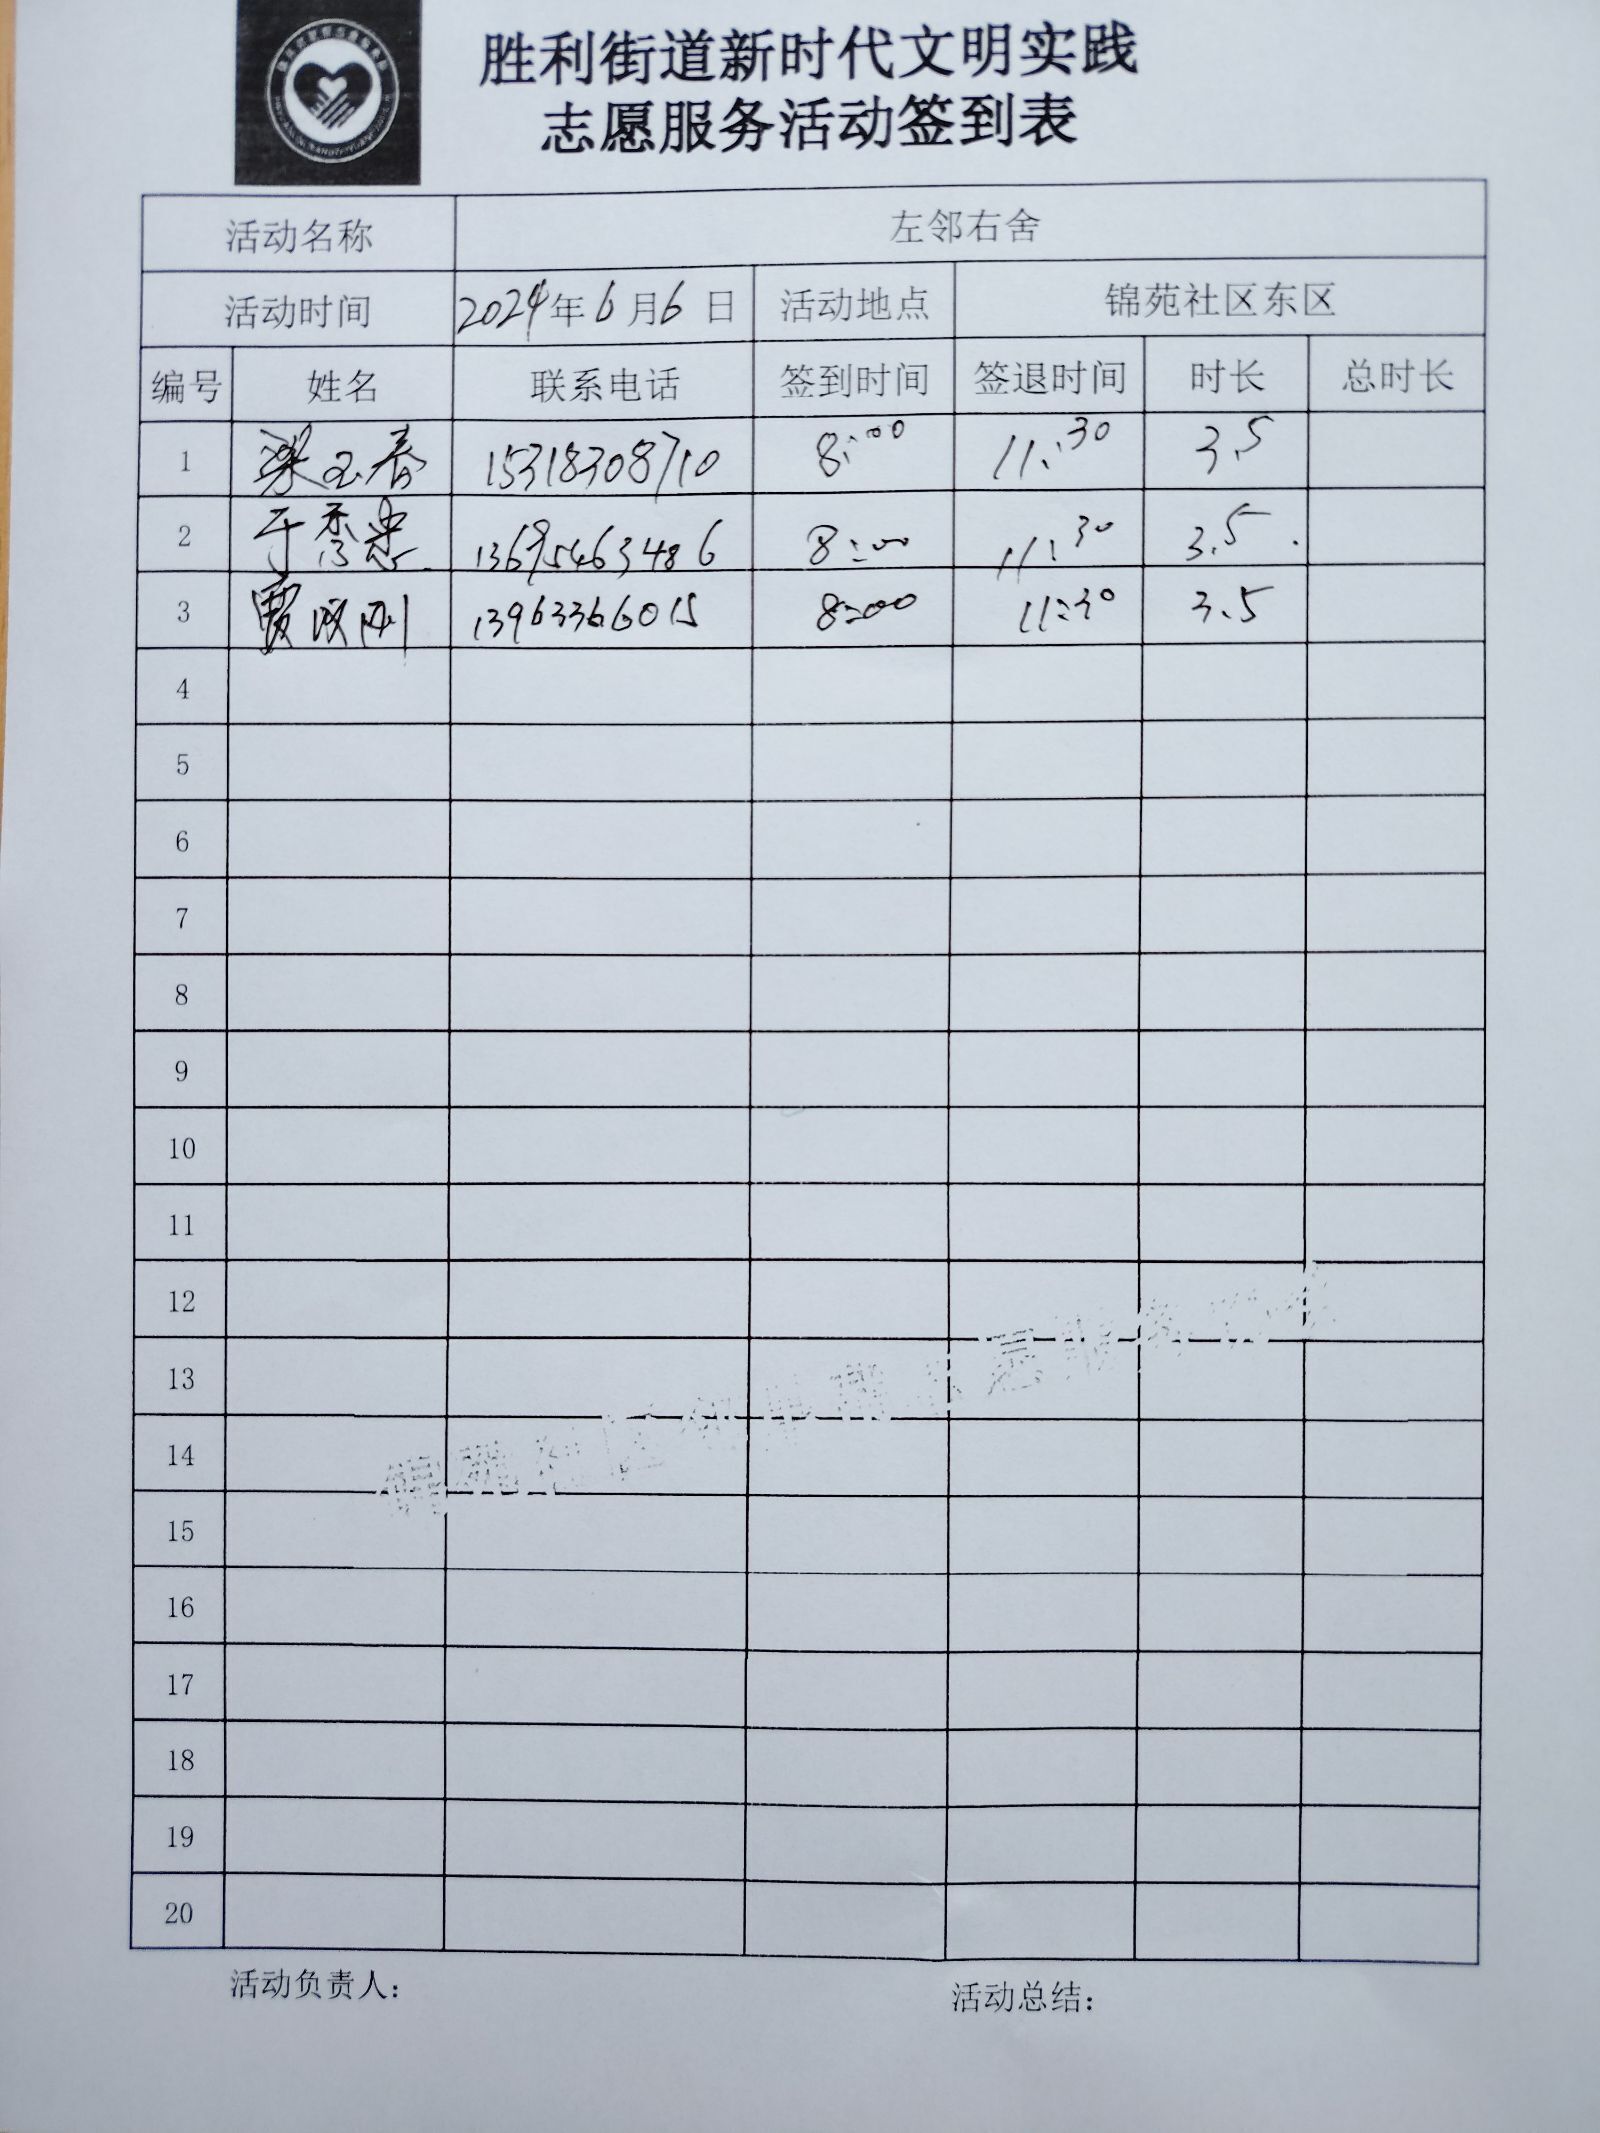 胜利街道新时代文明实践
志愿服务活动签到表
活动名称 左邻右舍
活动时间 2024年6月6日 活动地点 锦苑社区东区
编号 姓名 联系电话 签到时间 签退时间 时长 总时长
1 梁玉春 15318308710 8:00 11:30 3.5
2 于秀忠 13695463486 8:00 11:30 3.5
3 贾 刚 13963366015 8:00 11:30 3.5
4
5
6
7
8
9
10
11
12
13
14
15
16
17
18
19
20
活动负责人: 活动总结: